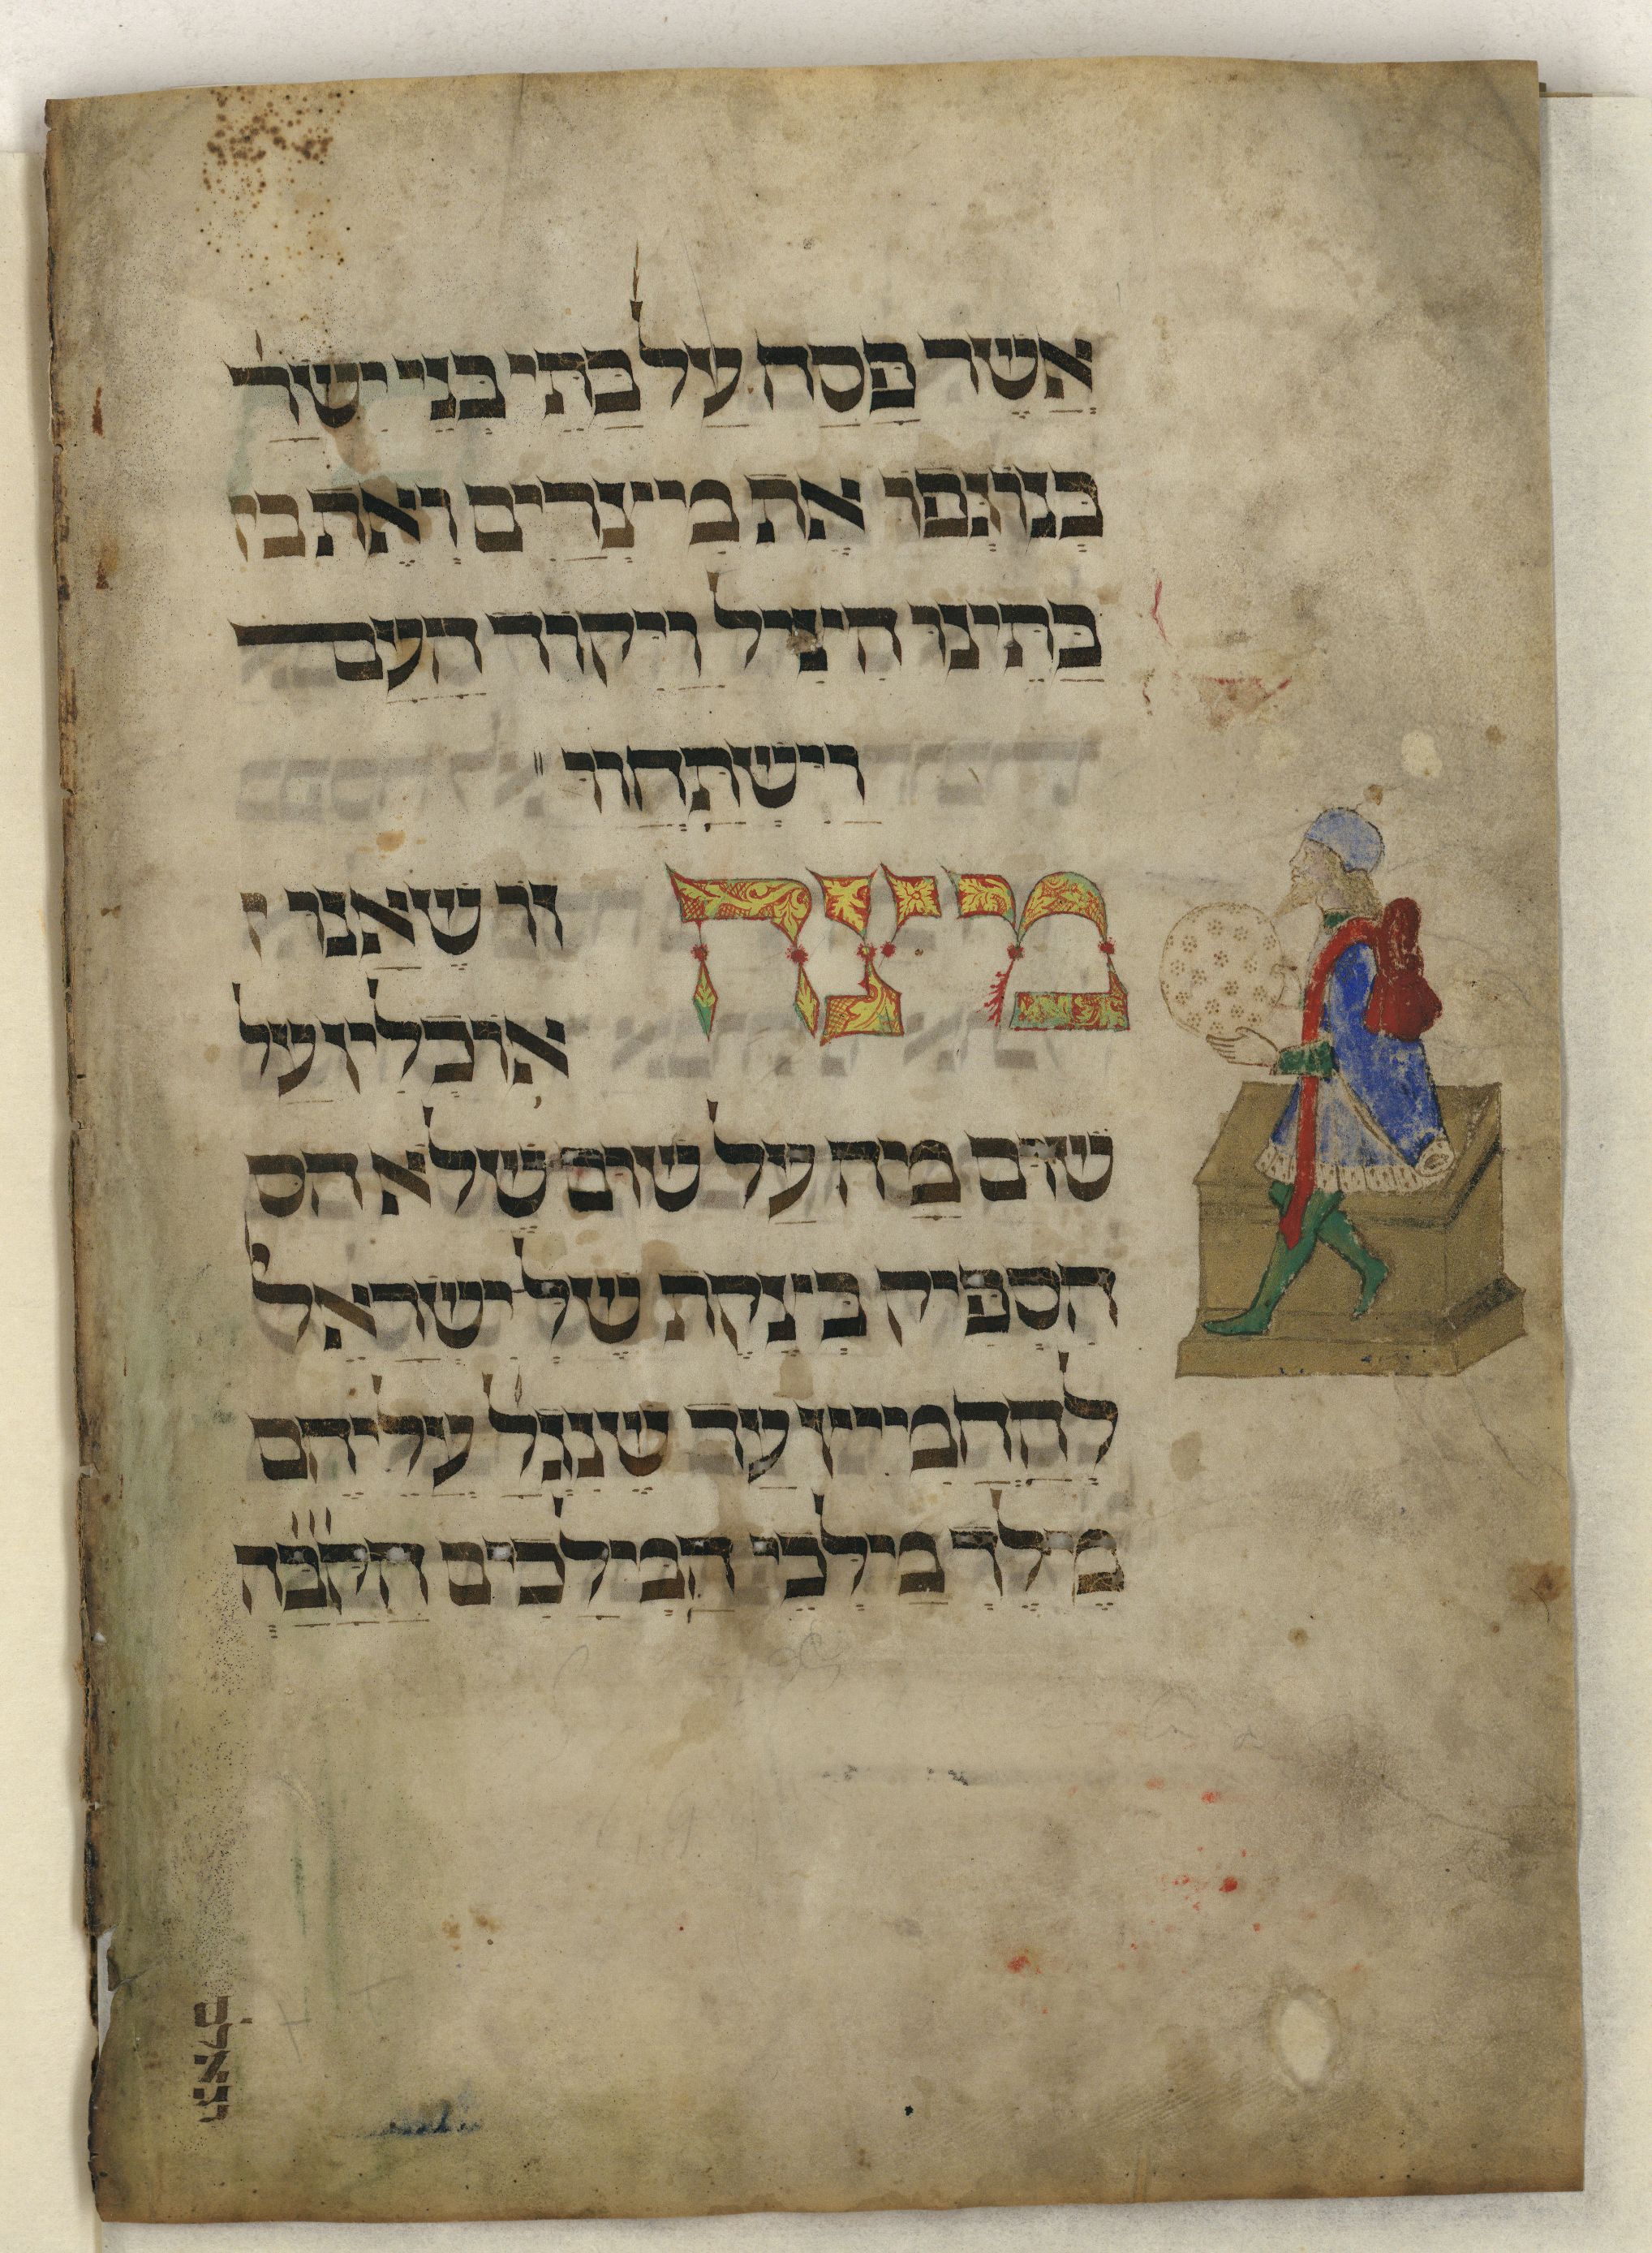 אשר פסח על בתי בני ישר
בנוגפו את מיצרים ואת בו
בתינו היציל ויקוד העם
וישתחוו
מיצה זו שאנו
אוכלין על
שום מה על שום שלא הס
הספיק ביצקת של ישראל
להחמייץ עד שננגל עליהם
מילך מילכי המילכים הקבה
וגאלם